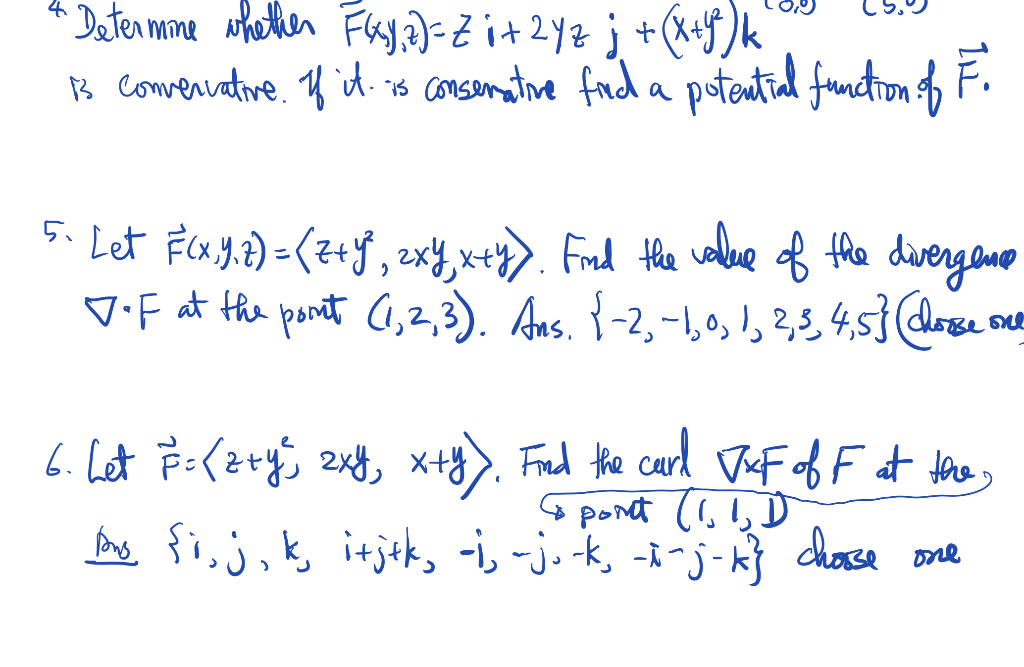 4. Determine whether F(x,y,z)=z i+2yz j+(x+y²)k
is convervative. If it is conservative find a potential function of F.
5. Let F(x,y,z)=⟨z+y², 2xy, x+y⟩. Find the value of the divergence
∇·F at the point (1,2,3). Ans. {-2, -1, 0, 1, 2, 3, 4, 5} (choose one
6. Let F=⟨z+y², 2xy, x+y⟩. Find the curl ∇×F of F at the
point (1, 1, 1)
Ans {i, j, k, i+j+k, -i, -j, -k, -i-j-k} choose one